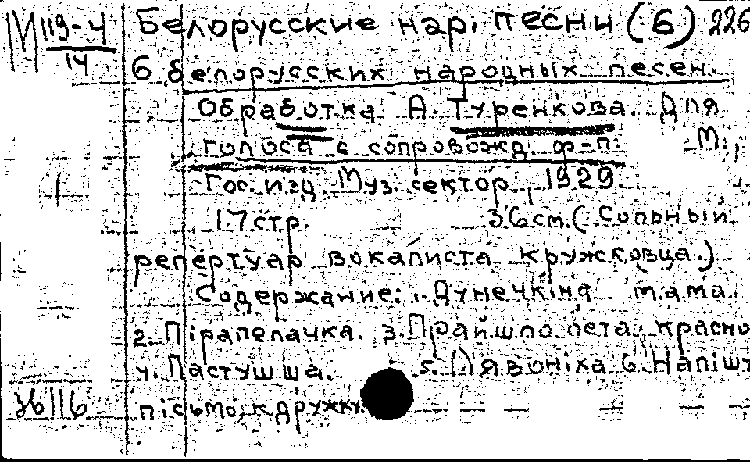 М 119-4 Белорусские нар. песни (6) 226
14 6 белорусских народных песен.
Обработка А. Туренкова. Для
голоса с сопровожд ф-п. М.,
Гос. изд Муз. сектор, 1929.
17 стр. 36 см. (Сольный
репертуар вокалиста кружковца.)
Содержание: 1. Дунечкiна мама.
2. Пiрапёлачка. 3. Прайшло лета красно
4. Пастушша. 5. Лявонiха 6. Напiшу
36116 пiсьмо к дружку.